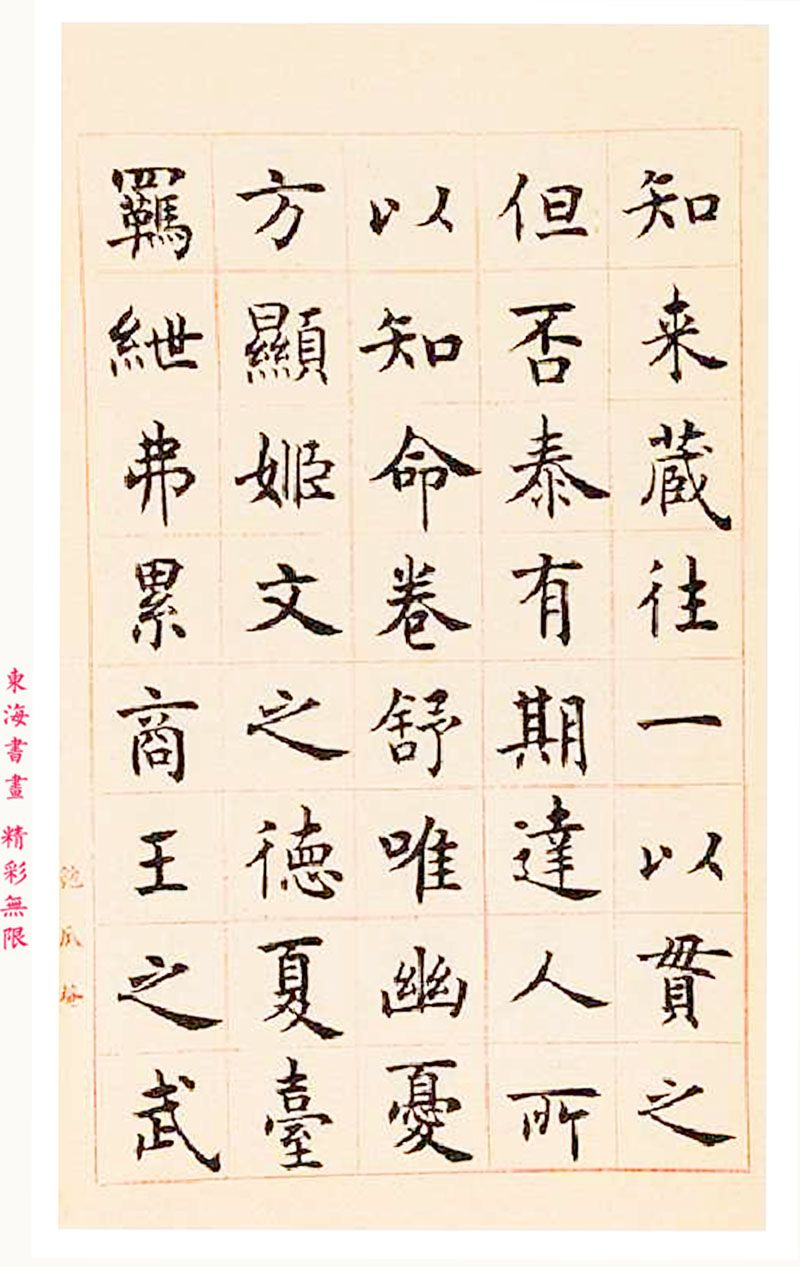 知来蔵往一以貫之
但否泰有期達人所
以知命卷舒唯幽憂
方顯姬文之德夏臺
羈紲弗累商王之武
東海書畫 精彩無限